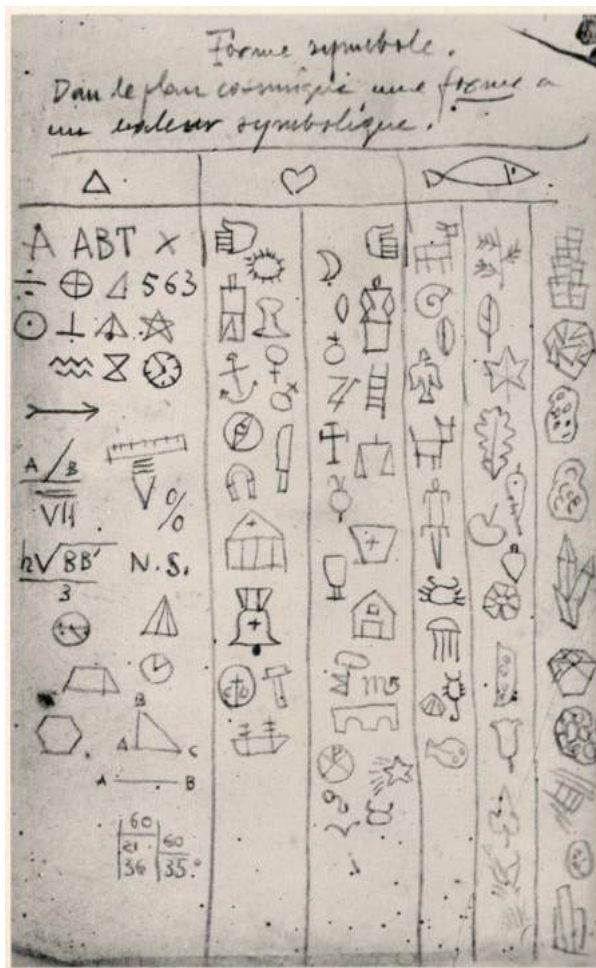 Forme symbole.
Dan le plan cosmique une forme a
un valeur symbolique.
A ABT X
÷ 563
A / B
VII %
h√BB' N.S.
3
B
A C
A B
60
21 60
36 35.